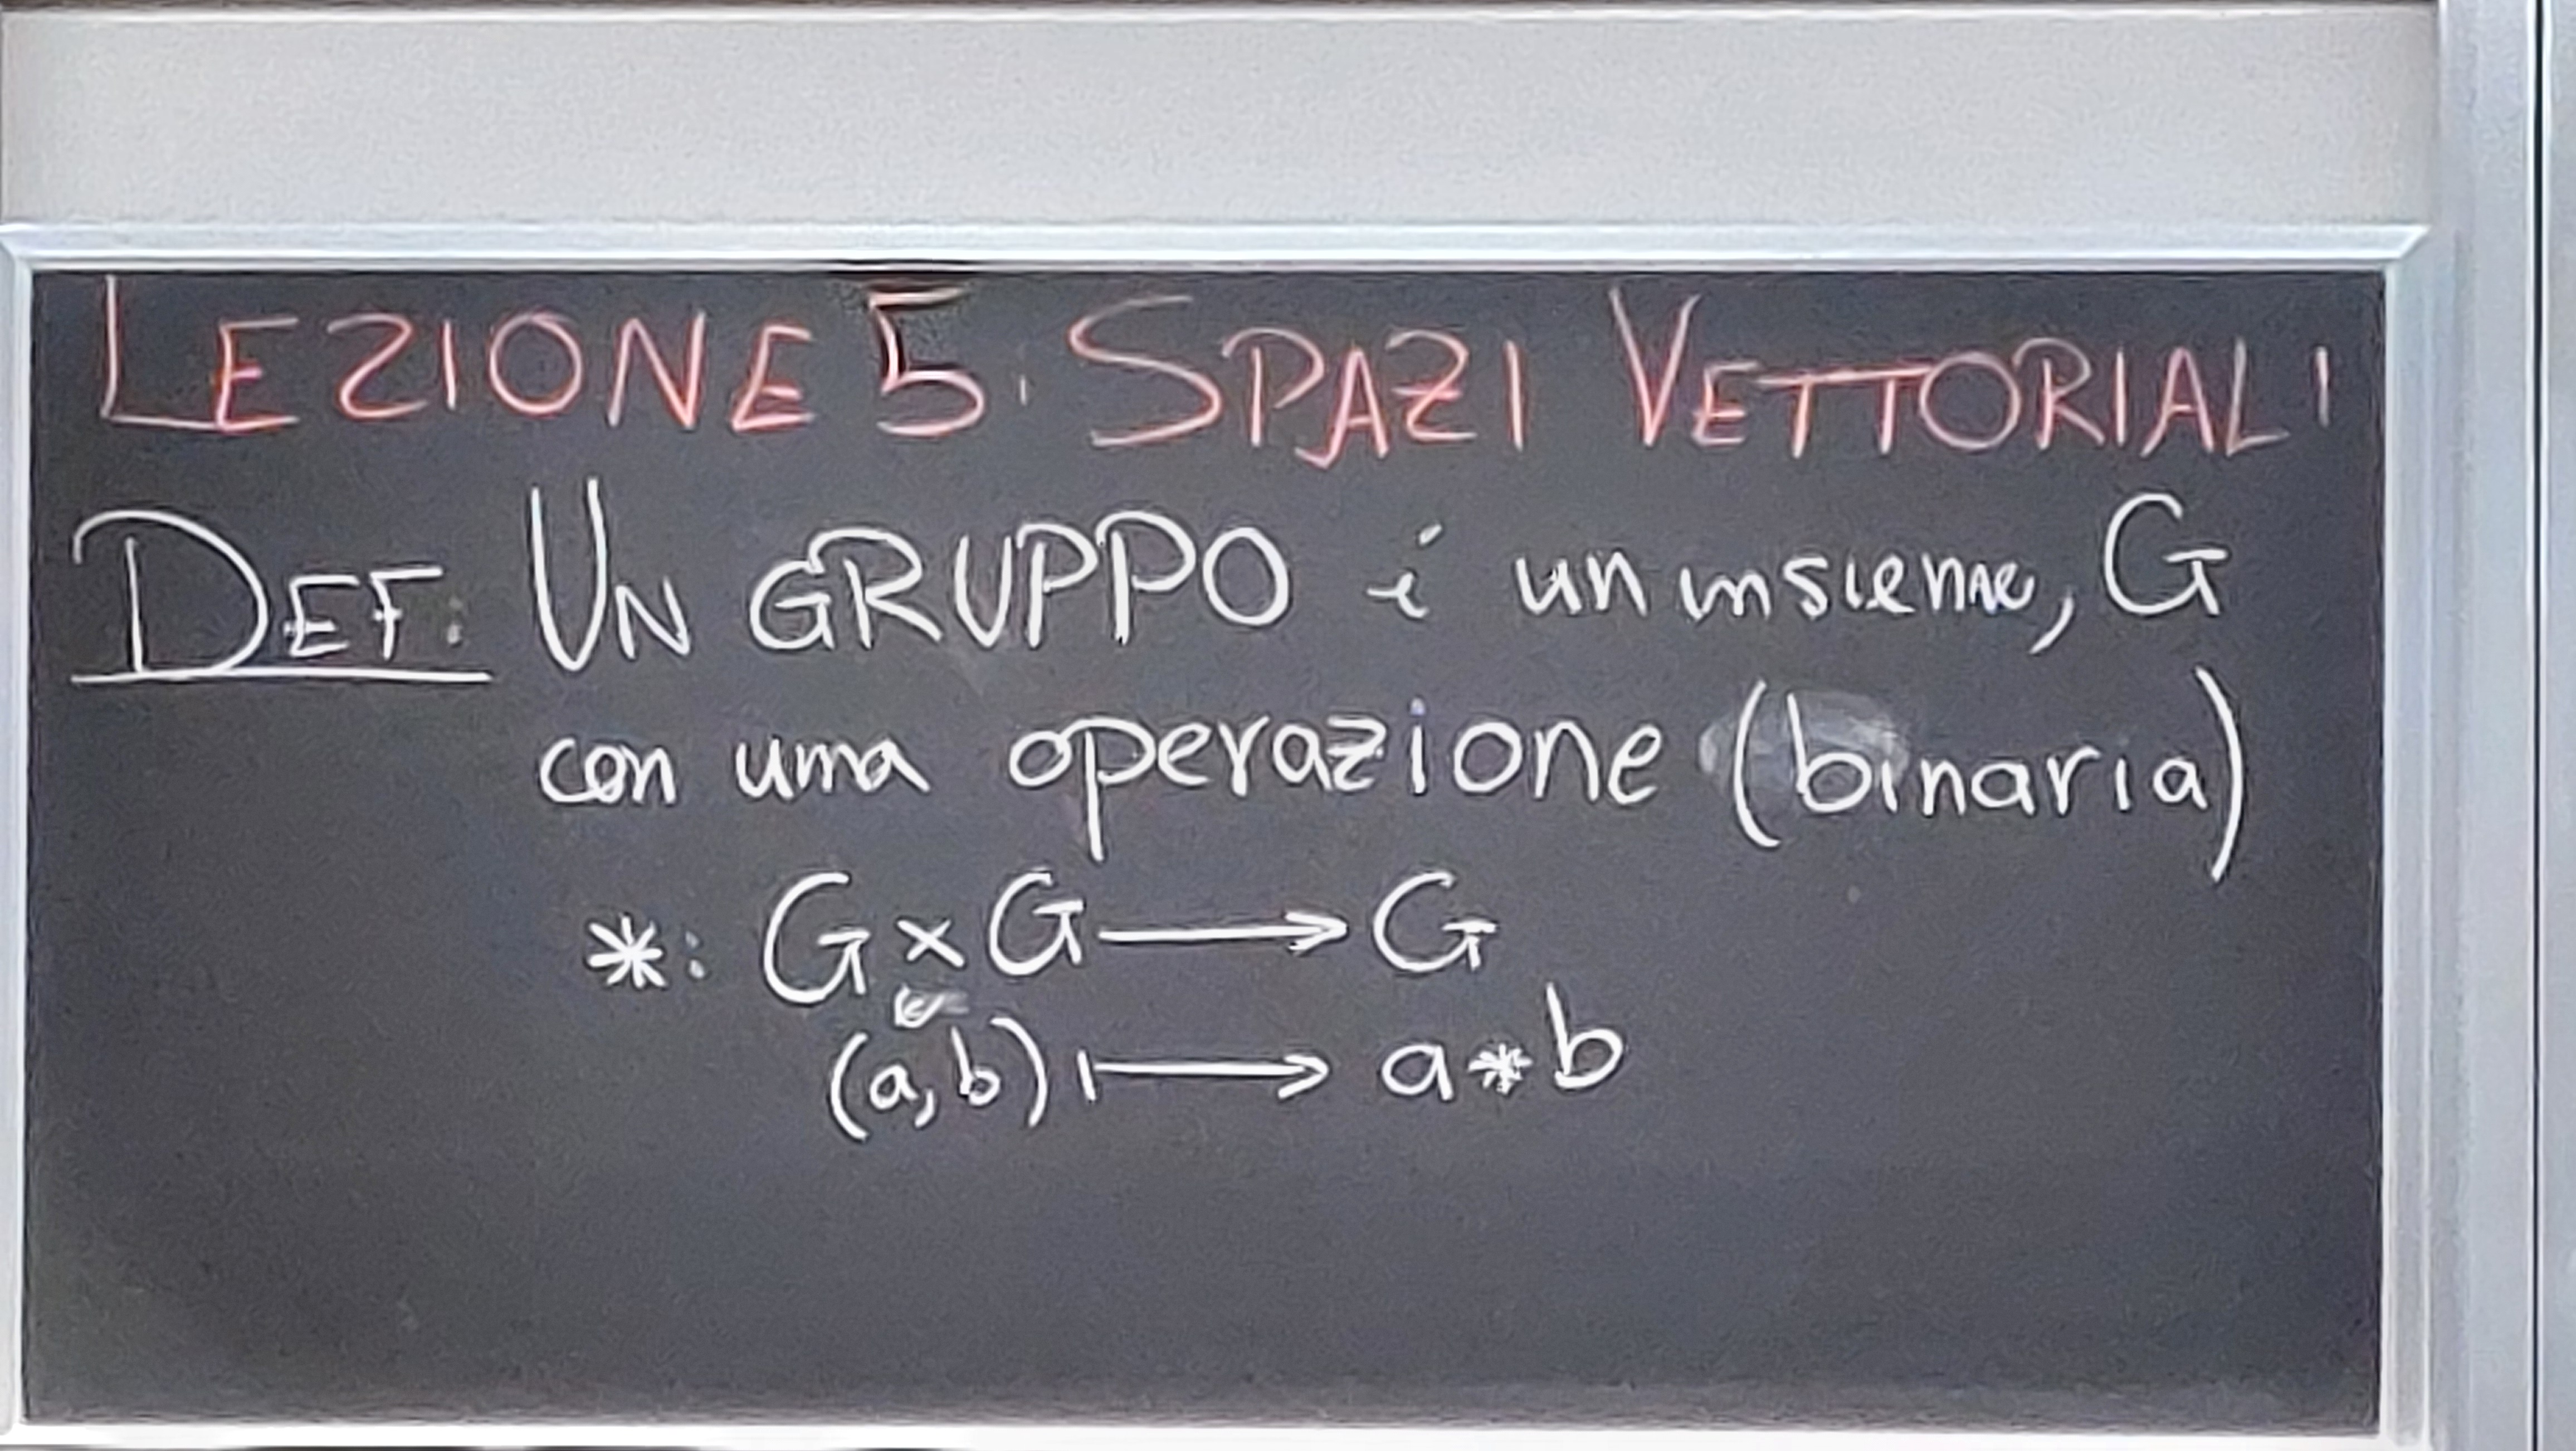 LEZIONE 5. SPAZI VETTORIALI
DEF: UN GRUPPO è un insieme, G
con una operazione (binaria)
*: G × G ⟶ G
(a,b) ⟼ a * b